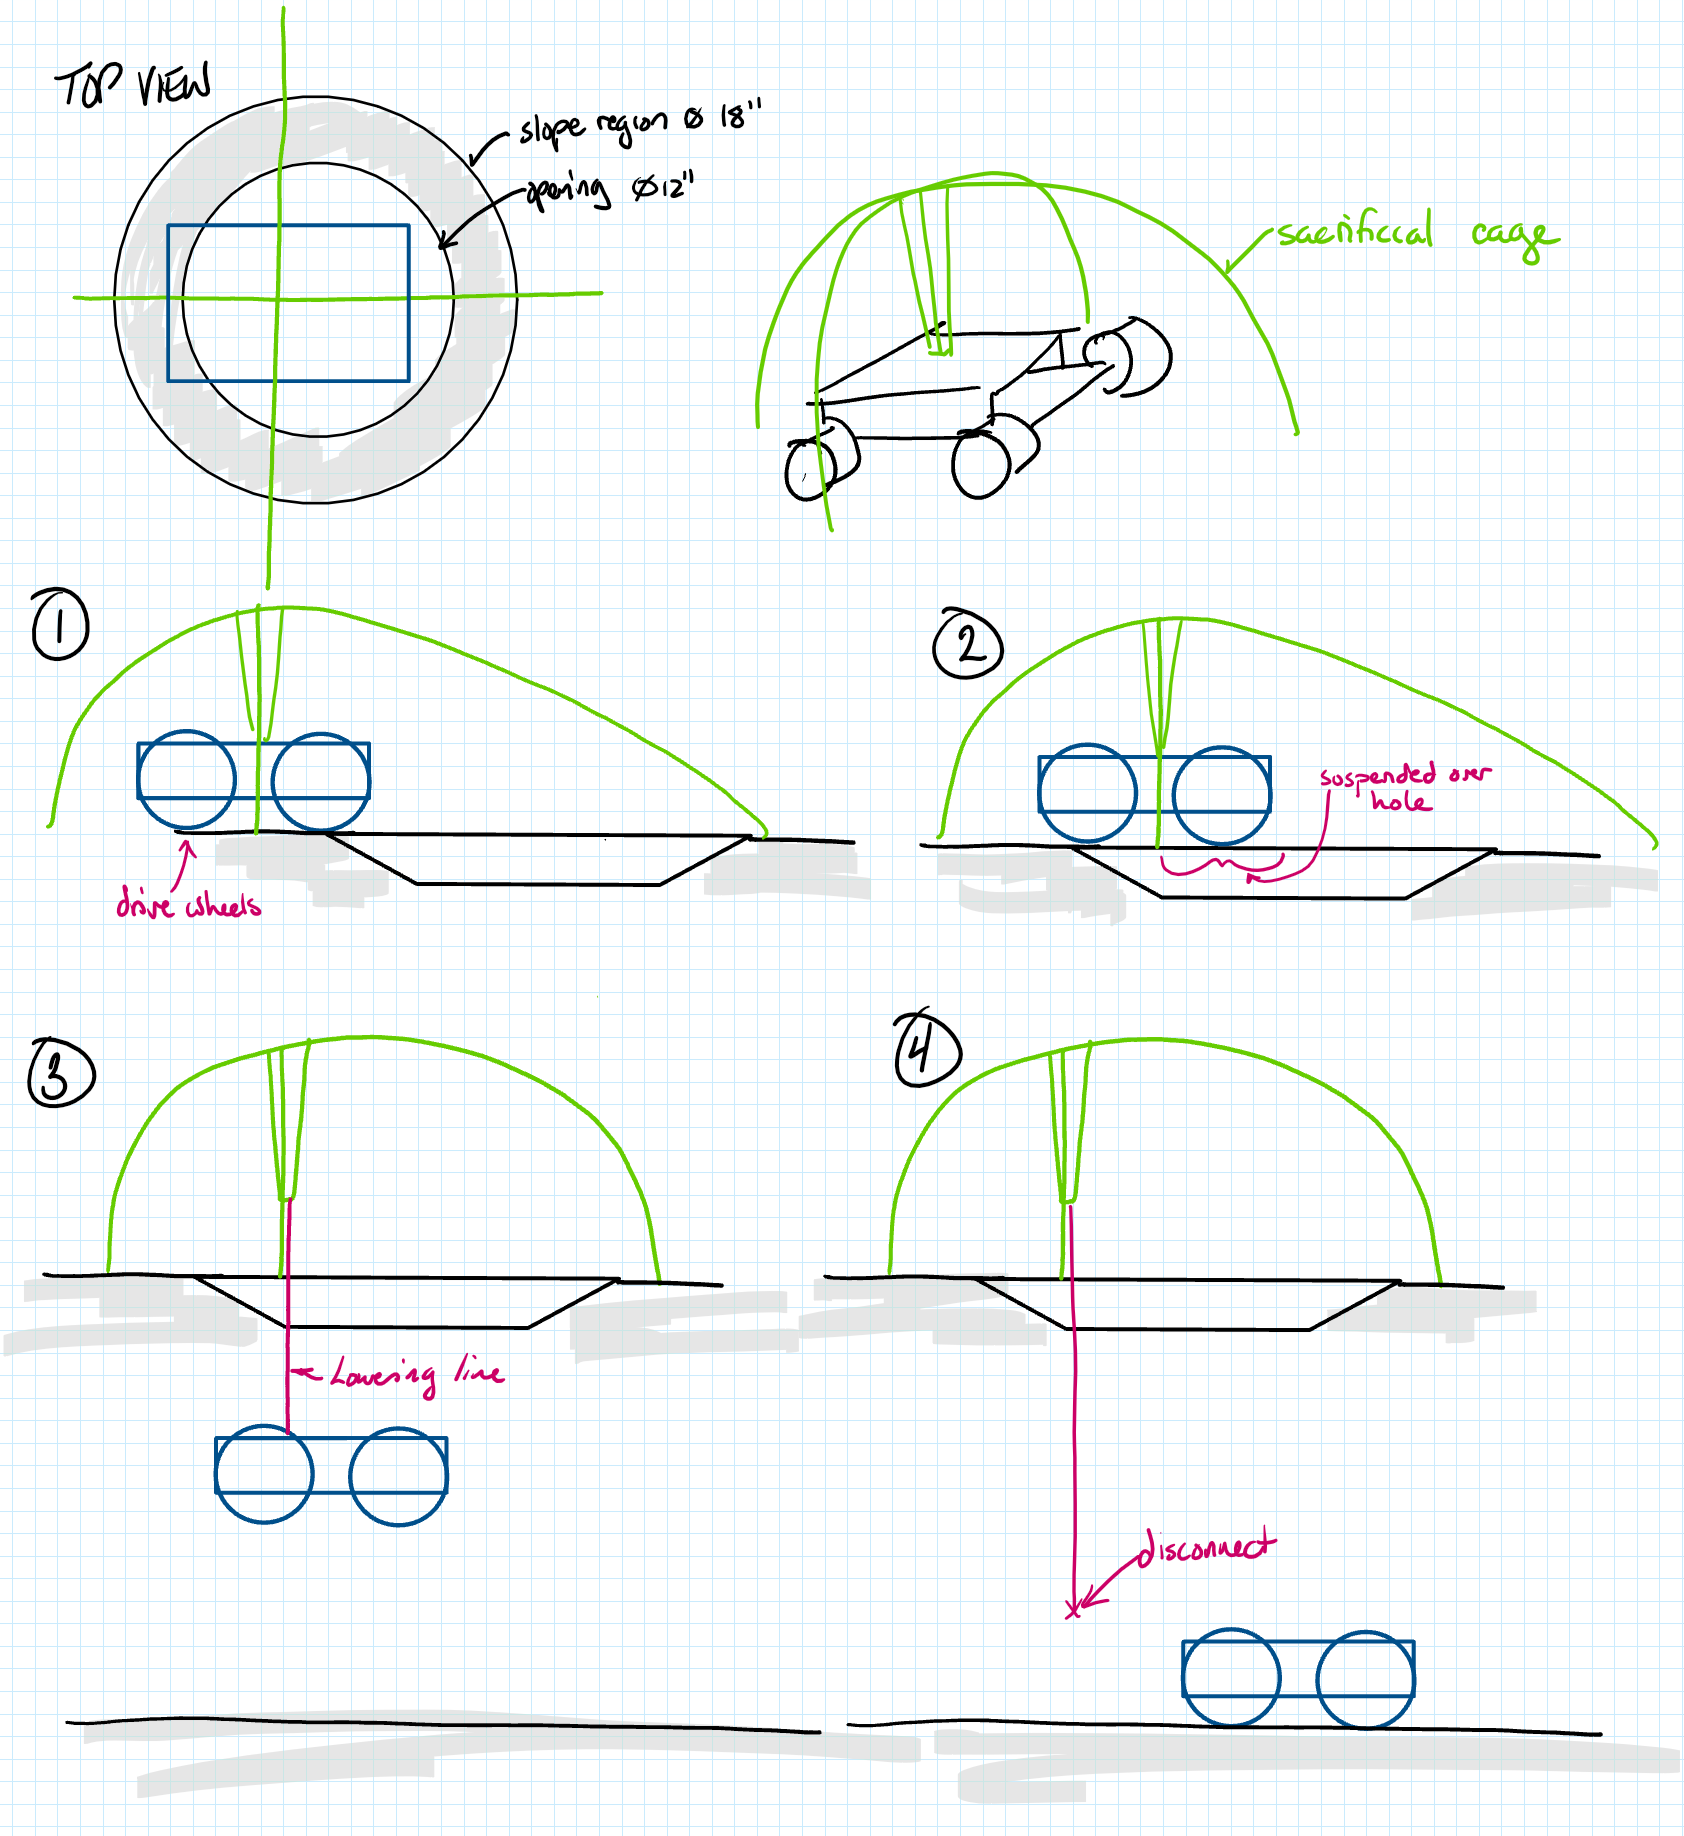 TOP VIEW
slope region Ø 18"
opening Ø12"
sacrificial cage
1
drive wheels
2
suspended over
hole
3
Lowering line
4
disconnect